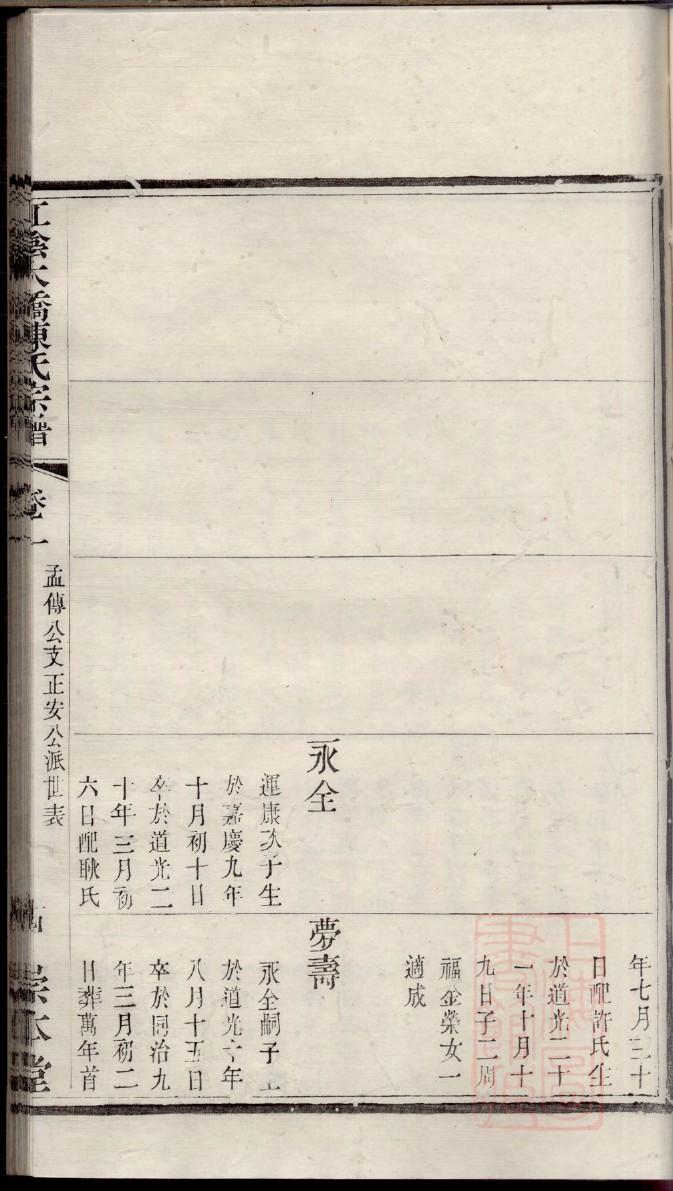 年七月三十
日配許氏生
於道光二十
一年十月十
九日子二周
福金榮女一
適成
永全
運康次子生
於嘉慶九年
十月初十日
卒於道光二
十年三月初
六日配耿氏
夢壽
永全嗣子生
於道光六年
八月十五日
卒於同治九
年三月初二
日葬萬年首
江陰大橋陳氏宗譜
卷一
孟傳公支正安公派世表
宗本堂